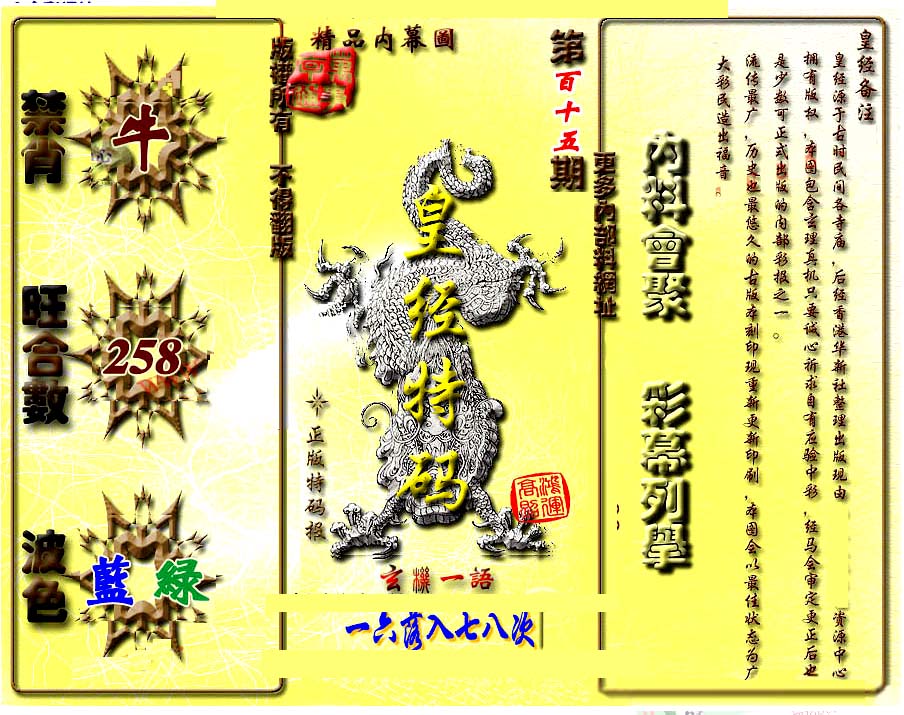 精品内幕圖
版權所有 不得翻版
第百十五期
更多內部料網址
禁肖
牛
旺合數
258
波色
藍 緑
皇经特码
正版特码报
鴻運高照
玄機一語
一六落入七八次
内料會聚
彩幕列舉
皇经备注
皇经源于古时民间各寺庙，后经香港华新社整理出版现由 资源中心
拥有版权，本图包含玄理真机只要诚心祈求自有应验中彩，经马会审定更正后也
是少数可正式出版的内部彩报之一。
流传最广，历史也最悠久的古版本刻印现重新更新印刷，本图会以最佳状态为广
大彩民造出福音